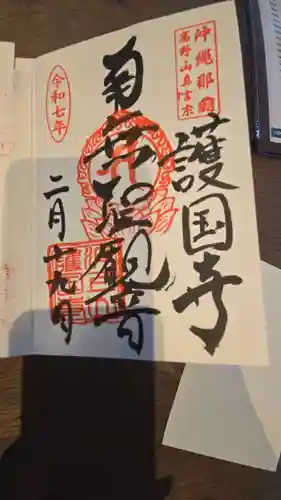 沖縄那覇
高野山真言宗
護国寺
南無聖観音
令和七年
二月十九日